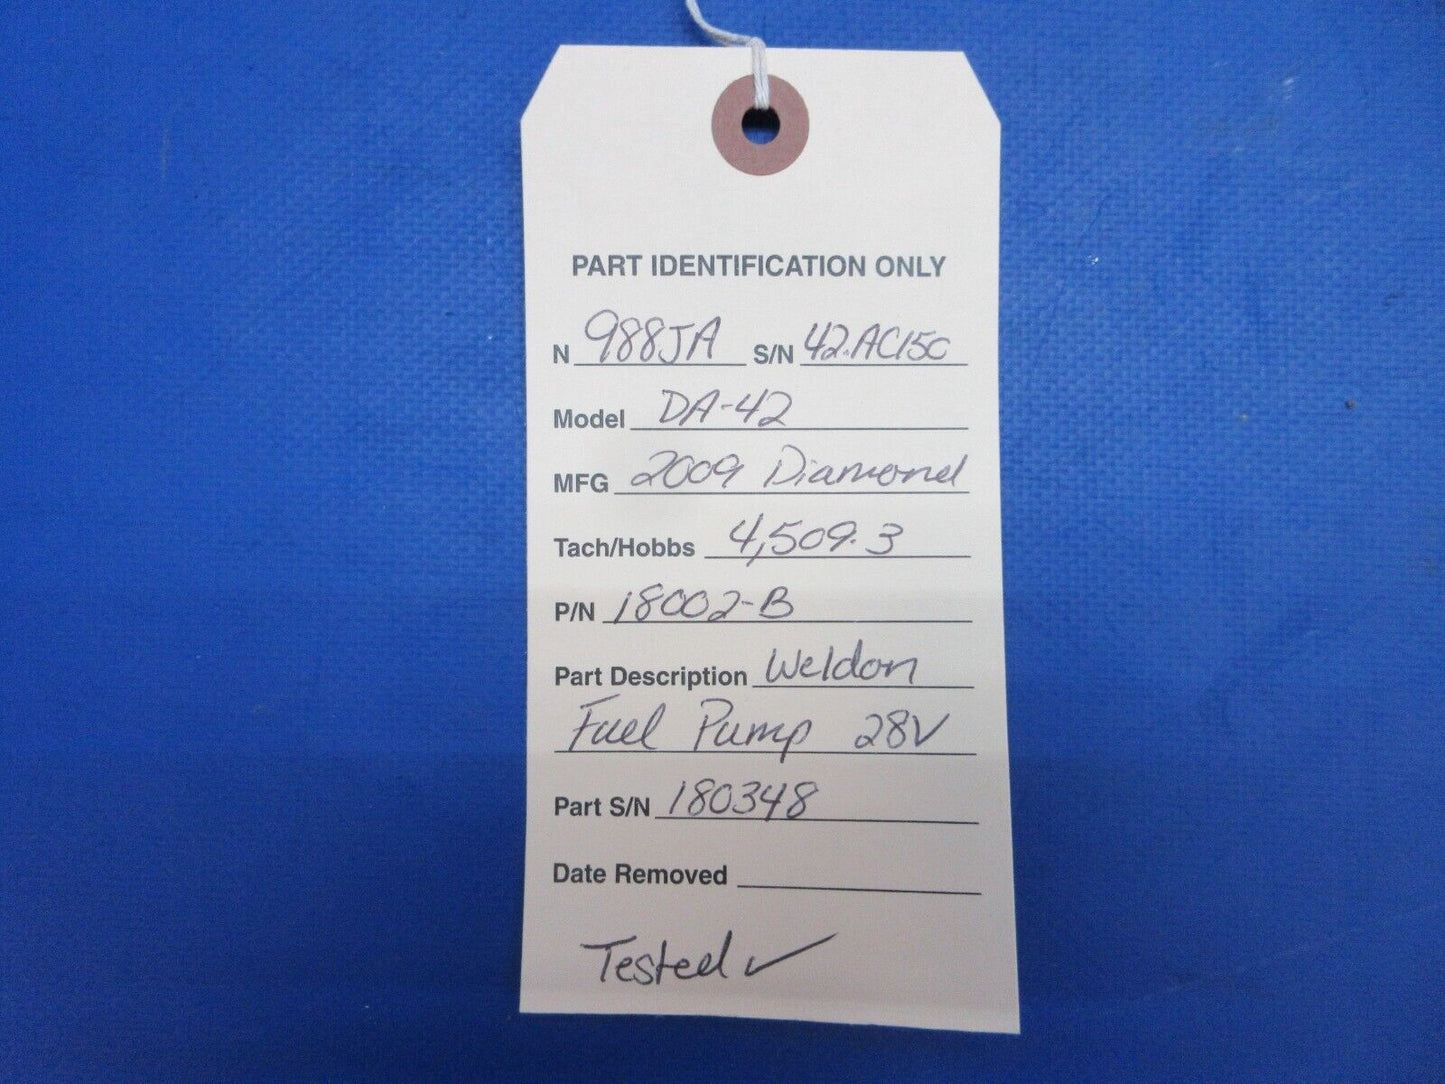 PART IDENTIFICATION ONLY
N 988JA S/N 42.AC150
Model DA-42
MFG 2009 Diamond
Tach/Hobbs 4,509.3
P/N 18002-B
Part Description Weldon
Fuel Pump 28V
Part S/N 180348
Date Removed
Tested ✓